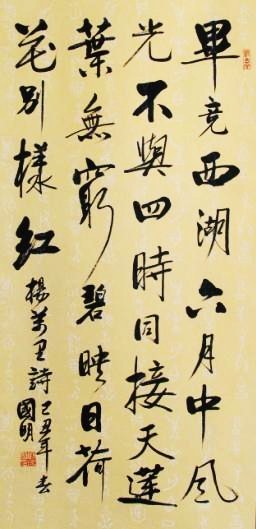 畢竟西湖六月中風
光不與四時同接天蓮
葉無窮碧映日荷
花别樣紅
楊萬里詩 己丑年
國明